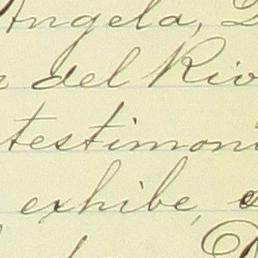 Angela,
del Rio
testimoni
exhibe,